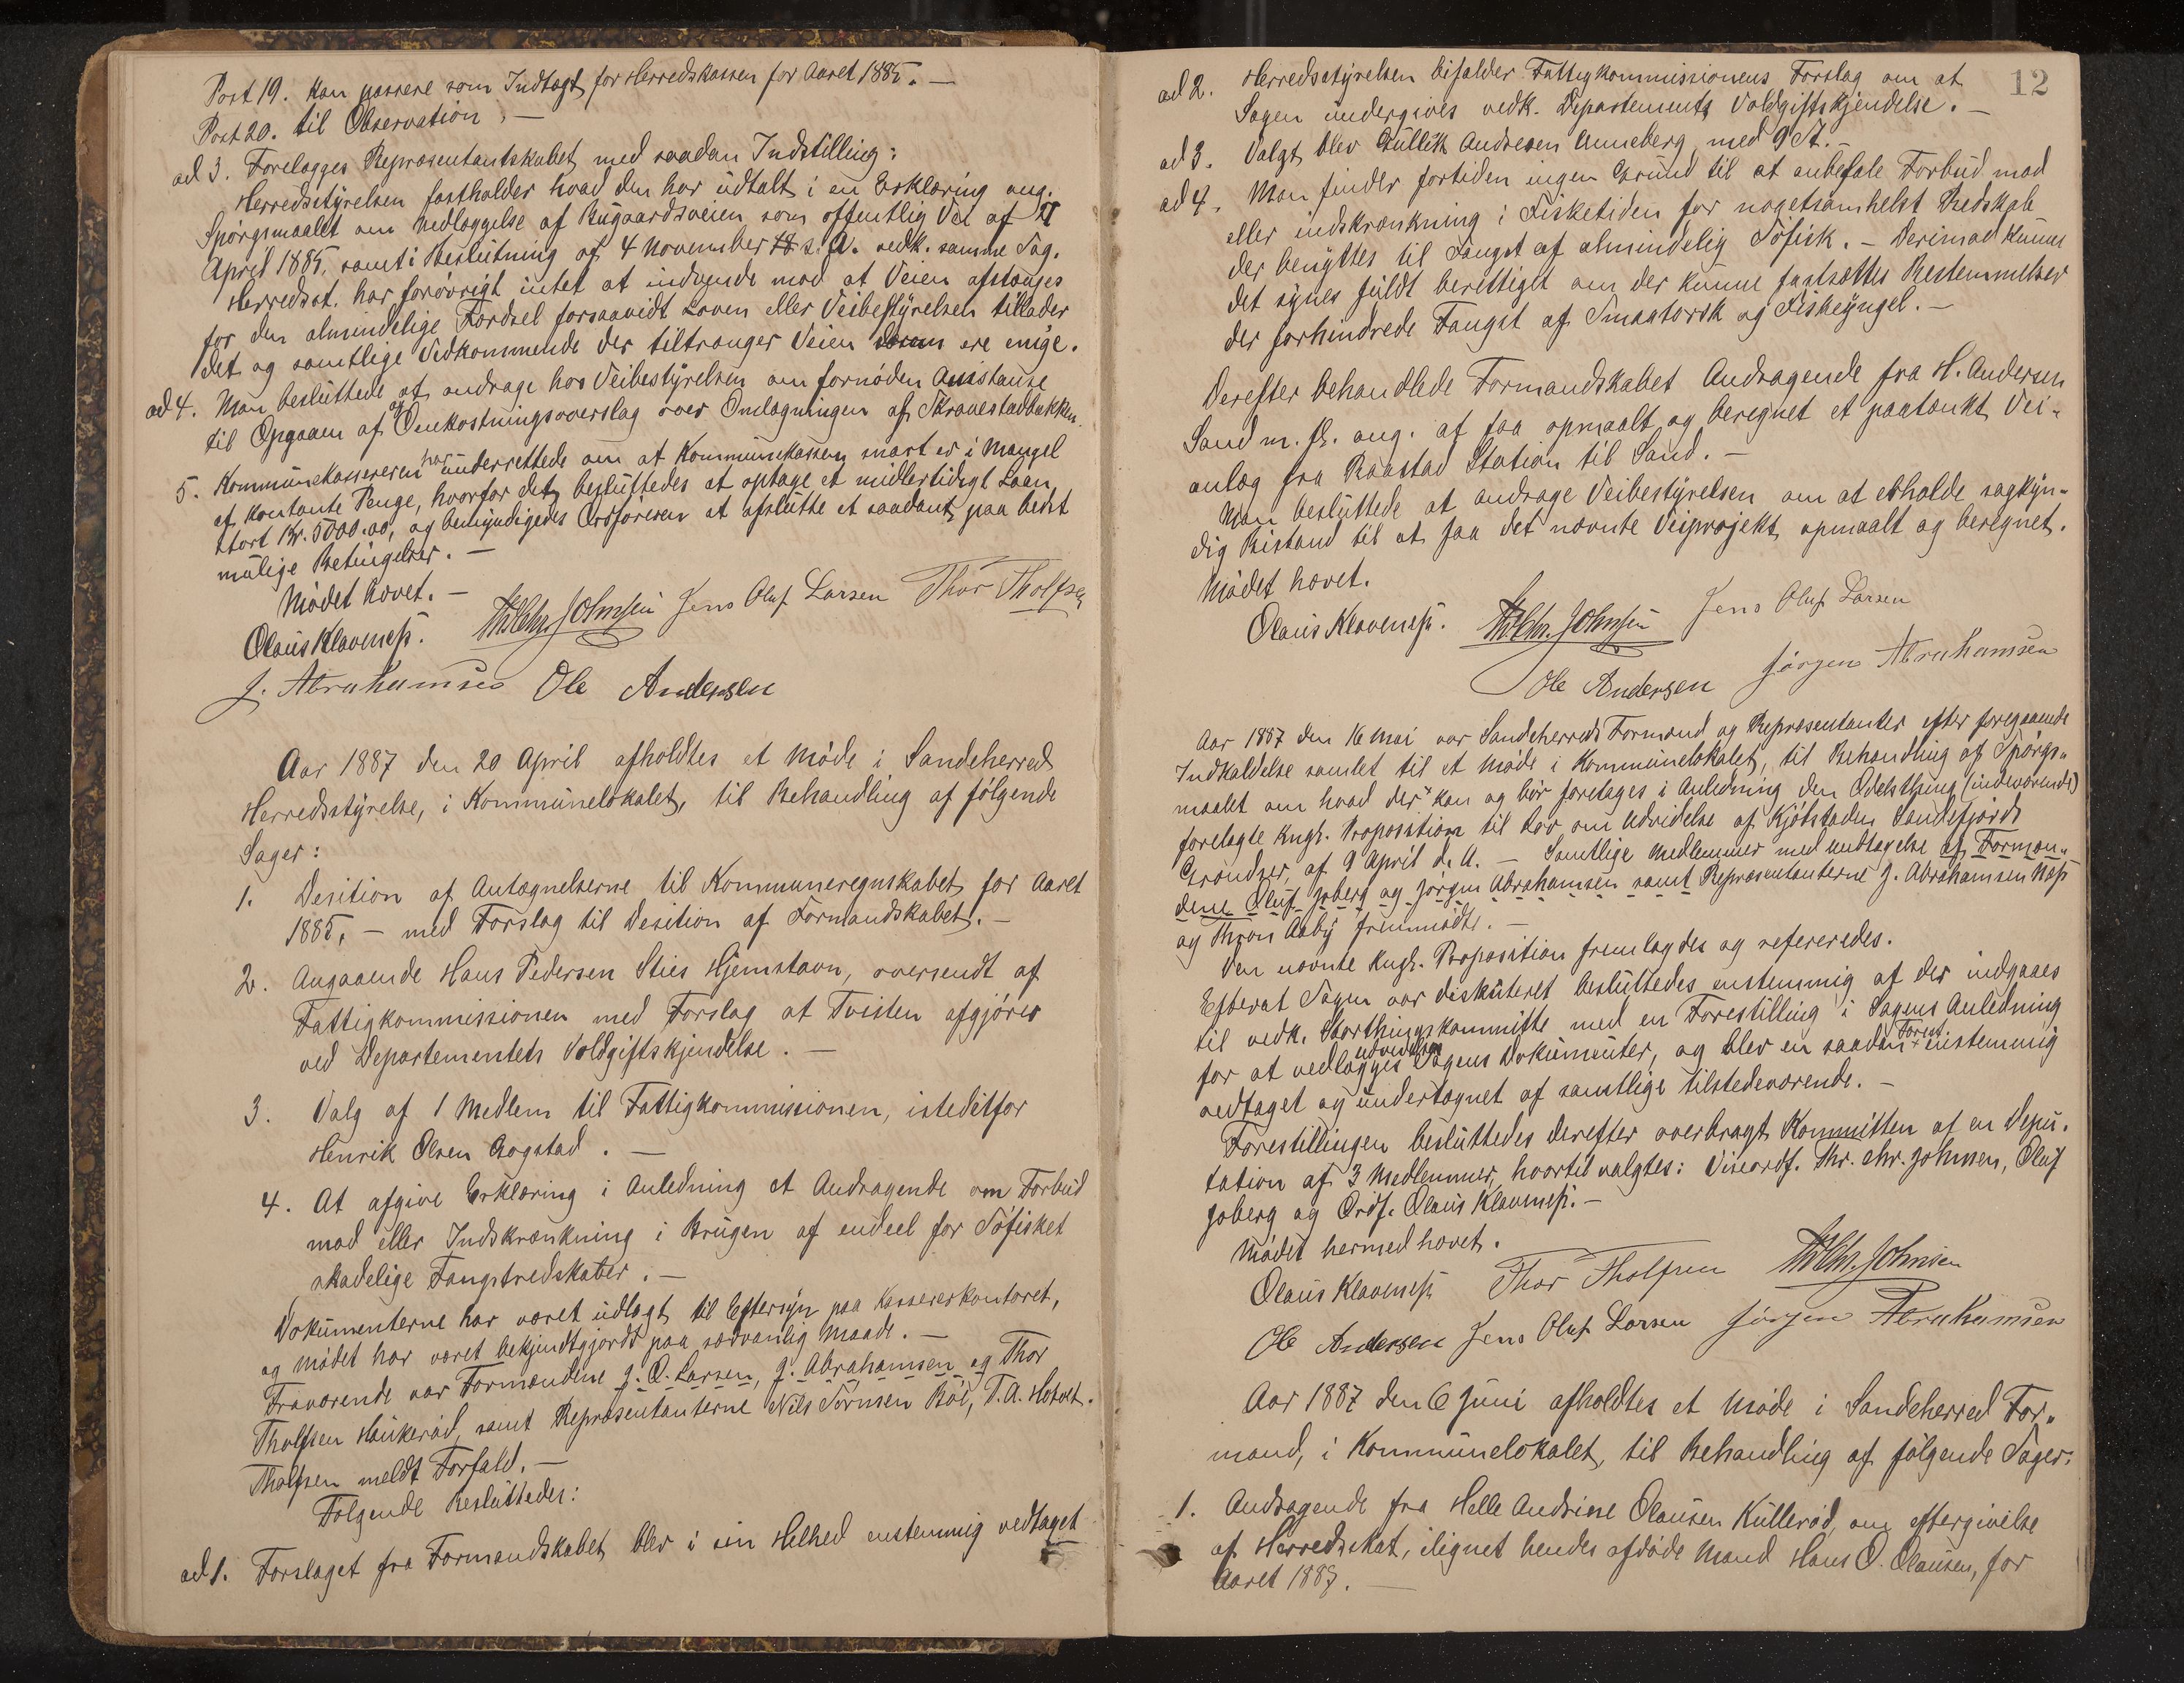 Post 19. Kan passere som Indtægt for Herredskassen for Aaret 1885. —
Post 20. til Observation. —
ad 3. Forelægges Repræsentantskabet med saadan Indstilling:
Herredsstyrelsen fastholder hvad den har udtalt i en Erklæring ang.
Spørgsmaalet om Nedlæggelse af Bugaardsveien som offentlig Vei af
April 1885, samt i Beslutning af 4 November s. A. vedk. samme Sag.
Herredsst. har forøvrigt intet at indvende mod at Veien afstænges
for den almindelige Færdsel forsaavidt Loven eller Veibestyrelsen tillader
det og samtlige Vedkommende der tiltrænger Veien ere enige.
ad 4. Man besluttede at andrage hos Veibestyrelsen om fornøden Assistanse
til Opgaaen af og Omkostningsoverslag over Omlægningen af Skravestadbakken.
5. Kommunekassereren har underrettede om at Kommunekassen snart er i Mangel
af kontante Penge, hvorfor det besluttedes at optage et midlertidigt Laan
stort Kr. 5000.00, og bemyndigedes Ordføreren at afslutte et saadant paa bedst
mulige Betingelser. —
Mødet hævet. —
Olaus Klavenesß. Th. Chr. Johnsen Jens Oluf Larsen Thor Tholfsen
J. Abrahamsen Ole Andersen
Aar 1887 den 20 April afholdtes et Møde i Sandeherred
Herredsstyrelse, i Kommunelokalet, til Behandling af følgende
Sager:
1. Desition af Antegnelserne til Kommuneregnskabet for Aaret
1885, — med Forslag til Desition af Formandskabet. —
2. Angaaende Hans Pedersen Sties Hjemstavn, oversendt af
Fattigkommissionen med Forslag at Tvisten afgjøres
ved Departementets Voldgiftskjendelse. —
3. Valg af 1 Medlem til Fattigkommissionen, istedetfor
Henrik Olsen Gogstad. —
4. At afgive Erklæring i Anledning et Andragende om Forbud
mod eller Indskrænkning i Brugen af endeel for Søfisket
skadelige Fangstredskaber. —
Dokumenterne har været udlagt til Eftersyn paa Kassererkontoret,
og Mødet har været bekjendtgjordt paa sædvanlig Maade. —
Fraværende var Formændene J. O. Larsen, J. Abrahamsen og Thor
Tholfsen Haukerød, samt Repræsentanterne Nils Sørensen Bøe, T. A. Hotvet.
Tholfsen meldt Forfald. —
Følgende Besluttedes:
ad 1. Forslaget fra Formandskabet blev i sin Helhed enstemmig vedtaget
12
ad 2. Herredsstyrelsen bifalder Fattigkommissionens Forslag om at
Sagen undergives vedk. Departements Voldgiftskjendelse. —
ad 3. Valgt blev Gullik Andresen Anneberg med 9 St. —
ad 4. Man finder fortiden ingen Grund til at anbefale Forbud mod
eller indskrænkning i Fisketiden for nogetsomhelst Redskab
der benyttes til Fangst af almindelig Søfisk. — Derimod kunne
det synes fuldt berettiget om der kunne fastsættes Bestemmelser
der forhindrede Fangst af Smaatorsk og Fiskeyngel. —
Derefter behandlede Formandskabet Andragende fra H. Andersen
Sand m. fl. ang. at faa opmaalt og beregnet et paatænkt Vei-
anlæg fra Raastad Station til Sand. —
Man besluttede at andrage Veibestyrelsen om at erholde sagkyn-
dig Bistand til at faa det nævnte Veiprojekt opmaalt og beregnet.
Mødet hævet.
Olaus Klavenesß. Th. Chr. Johnsen Jens Oluf Larsen
Ole Andersen Jørgen Abrahamsen
Aar 1887 den 16 Mai var Sandeherreds Formænd og Repræsentanter efter foregaaende
Indkaldelse samlet til et Møde i Kommunelokalet, til Behandling af Spørgs-
maalet om hvad der kan og bør foretages i Anledning den Odelsthing (indeværende)
forelagte kngl. Proposition til Lov om Udvidelse af Kjøbstaden Sandefjords
Grændser, af 9 April d. A. — Samtlige Medlemmer med undtagelse af Formæn-
dene Oluf Joberg og Jørgen Abrahamsen samt Repræsentanterne J. Abrahamsen Næs
og Thron Aaby fremmødte. —
Den nævnte kngl. Proposition fremlagdes og refereredes.
Efterat Sagen var diskuteret besluttedes enstemmig at der indgaaes
til vedk. Storthingskommitte med en Forestilling i Sagens Anledning
for at vedlægges Sagens Dokumenter, og blev en saadan Forest. enstemmig
vedtaget og undertegnet af samtlige tilstedeværende. —
Forestillingen besluttedes derefter overbragt Kommitten af en Depu-
tation af 3 Medlemmer, hvortil valgtes: Viseordf. Thr. Chr. Johnsen, Oluf
Joberg og Ordf. Olaus Klavenesß. —
Mødet hermed hævet.
Olaus Klavenesß Thor Tholfsen Th. Chr. Johnsen
Ole Andersen Jens Oluf Larsen Jørgen Abrahamsen
Aar 1887 den 6 Juni afholdtes et Møde i Sandeherred For-
mænd, i Kommunelokalet, til Behandling af følgende Sager:
1. Andragende fra Helle Andrine Olausen Kullerød, om eftergivelse
af Herredsskat, ilignet hendes afdøde Mand Hans O. Olausen, for
Aaret 1887. —